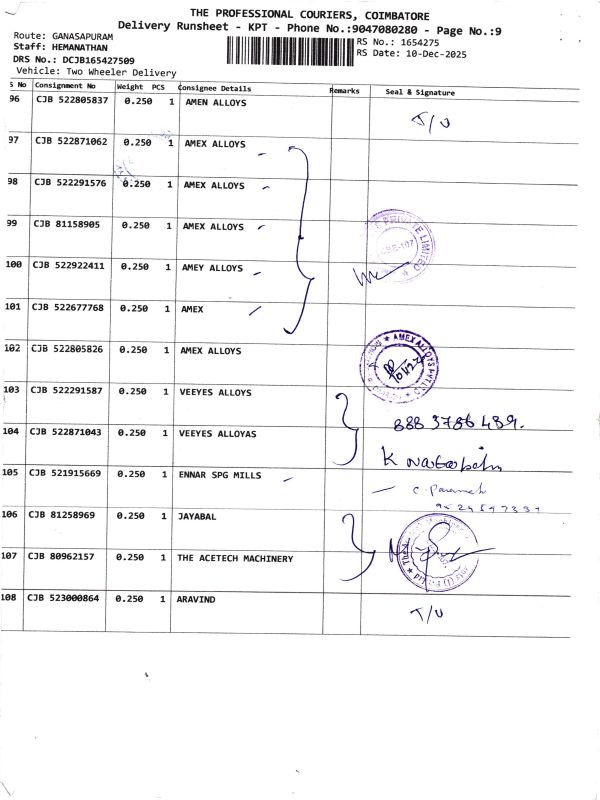 THE PROFESSIONAL COURIERS, COIMBATORE
Delivery Runsheet - KPT - Phone No.:9047080280 - Page No.:9
Route: GANASAPURAM
Staff: HEMANATHAN
RS No.: 1654275
DRS No.: DCJB165427509
RS Date: 10-Dec-2025
Vehicle: Two Wheeler Delivery
S No Consignment No Weight PCS Consignee Details Remarks Seal & Signature
96 CJB 522805837 0.250 1 AMEN ALLOYS
97 CJB 522871062 0.250 1 AMEX ALLOYS
98 CJB 522291576 0.250 1 AMEX ALLOYS
99 CJB 81158905 0.250 1 AMEX ALLOYS
PRIVATE LIMITED
100 CJB 522922411 0.250 1 AMEY ALLOYS
101 CJB 522677768 0.250 1 AMEX
102 CJB 522805826 0.250 1 AMEX ALLOYS
AMEX ALLOYS PVT LTD
103 CJB 522291587 0.250 1 VEEYES ALLOYS
888 3786 439.
104 CJB 522871043 0.250 1 VEEYES ALLOYAS
K
105 CJB 521915669 0.250 1 ENNAR SPG MILLS
106 CJB 81258969 0.250 1 JAYABAL
107 CJB 80962157 0.250 1 THE ACETECH MACHINERY
108 CJB 523000864 0.250 1 ARAVIND